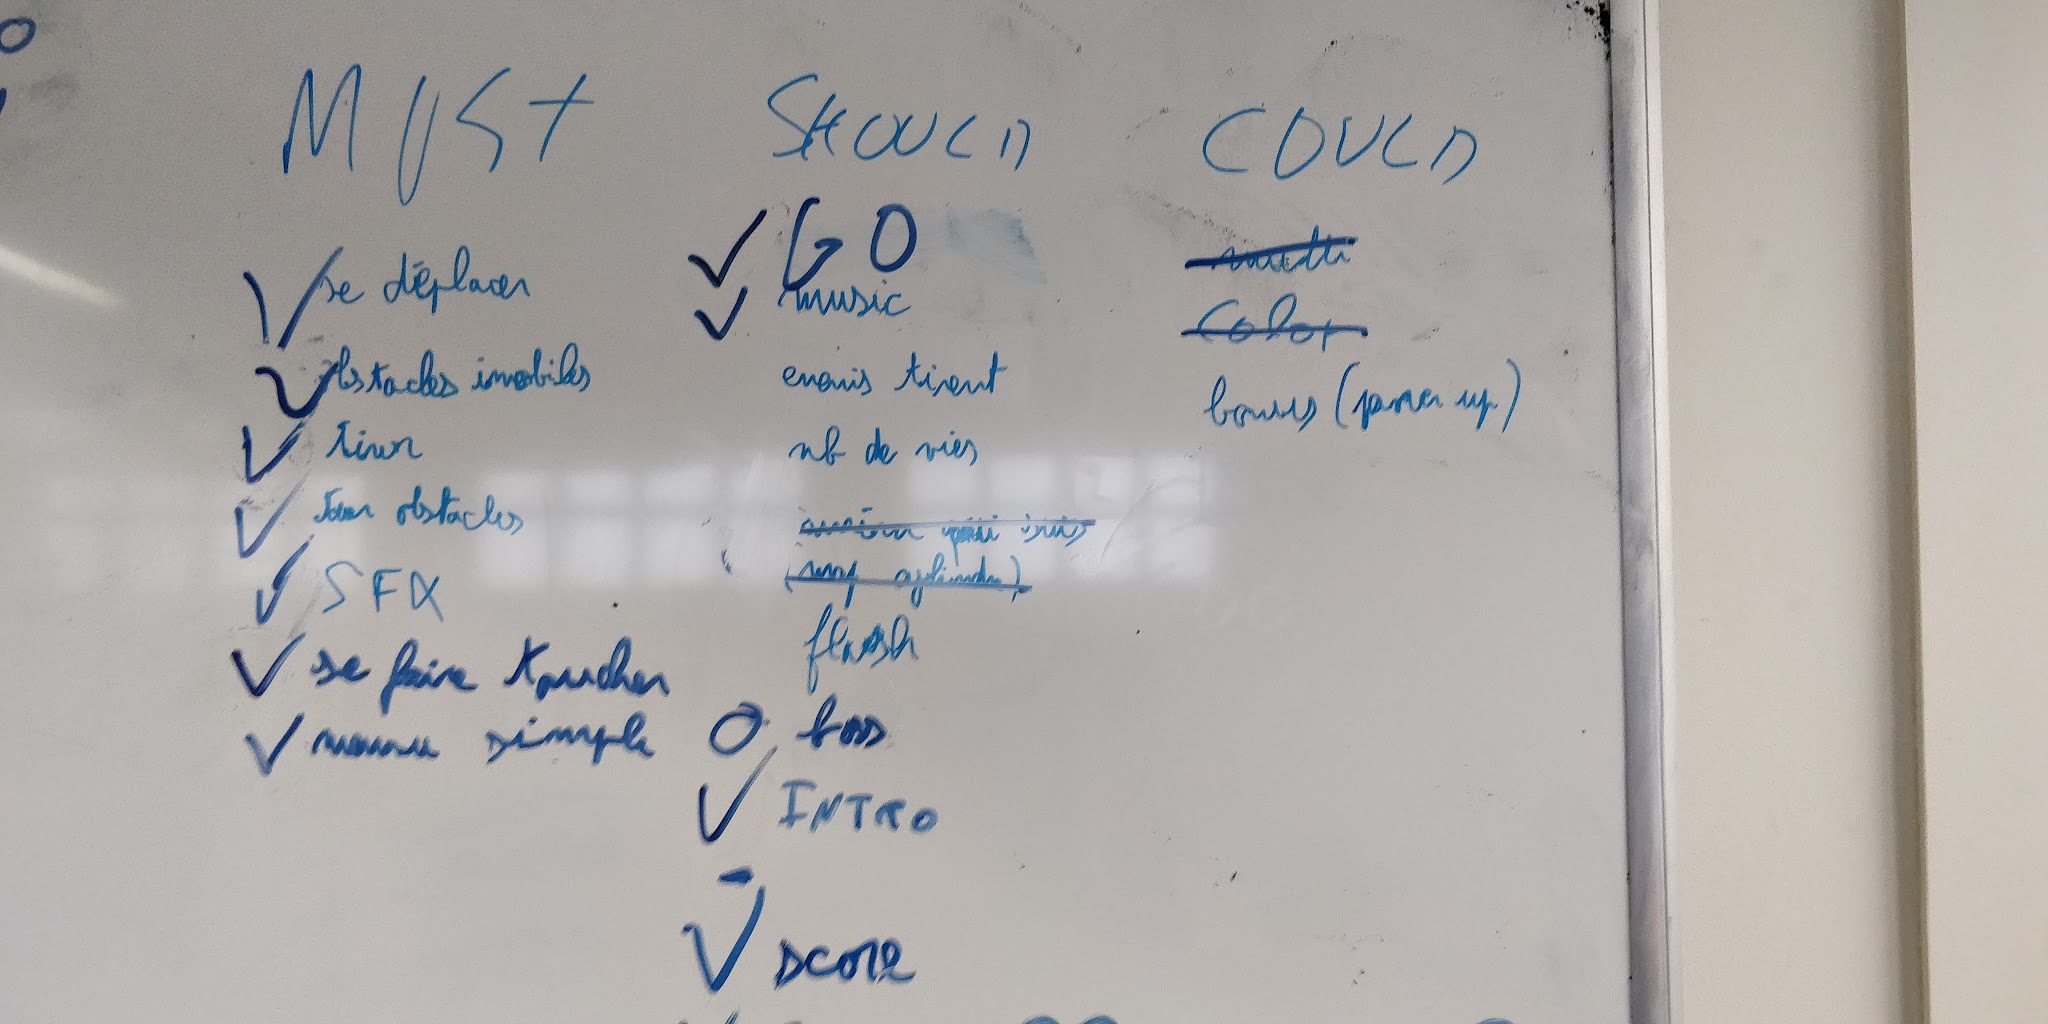 MUST
se déplacer
obstacles immobiles
tirer
tuer obstacles
SFX
se faire toucher
menu simple
SHOULD
GO
music
enemis tirent
nb de vies
qui suis
flash
boss
INTRO
score
COULD
multi
color
bonus (power up)